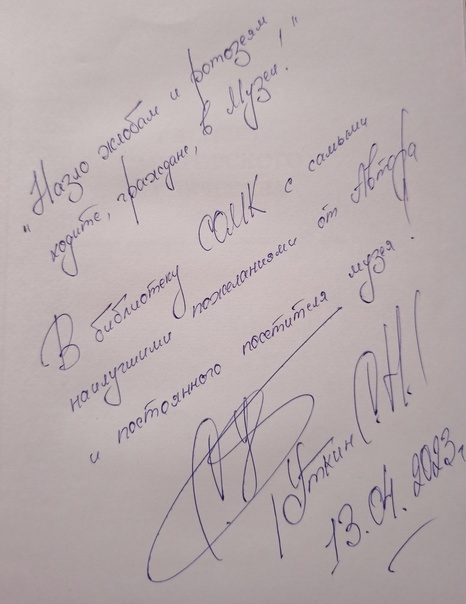 "Назло жлобам и ротозеям
ходите, граждане, в Музеи!"
В библиотеку СОМК с самыми
наилучшими пожеланиями от Автора
и постоянного посетителя музея!
Уткин
13.04.2023г